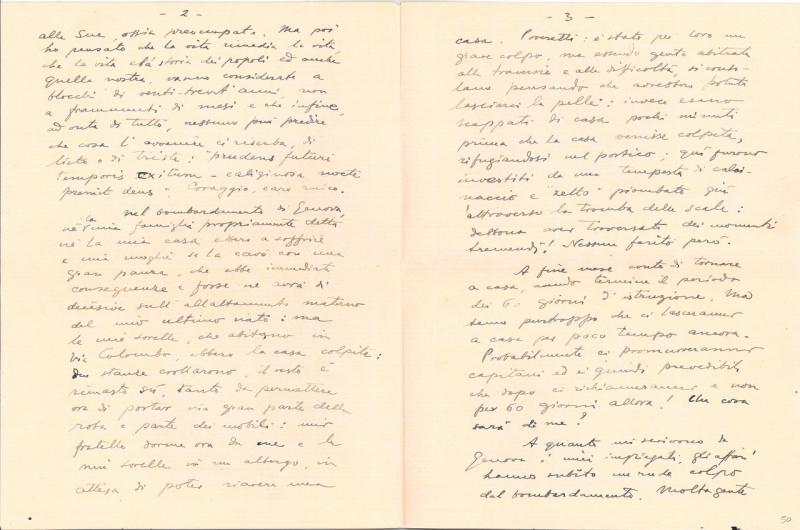 - 2 -
alle Sue, ossia preoccupata. Ma poi
ho pensato che la vita rimedia la vita,
che la vita e la storia dei popoli ed anche
quella nostra, vanno considerate a
blocchi di venti-trent'anni, non
a frammenti di mesi e che infine,
ad onta di tutto, nessuno può predire
che cosa l'avvenire ci riserba, di
lieto o di triste: "prudens futuri
temporis exitum - caliginosa nocte
premit deus" - Coraggio, caro amico.
Nel bombardamento di Genova,
nè la mia famiglia propriamente detta
nè la mia casa ebbero a soffrire
e mia moglie se la cavò con una
gran paura, che ebbe immediate
conseguenze e forse ne avrà di
decisive sull'allattamento materno
del mio ultimo nato: ma
le mie sorelle, che abitano in
Via Colombo, ebbero la casa colpita:
due stanze crollarono, il resto è
rimasto sù, tanto da permettere
ora di portar via gran parte della
roba e parte dei mobili: mio
fratello dorme ora da me e le
mie sorelle in un albergo, in
attesa di poter riavere una
- 3 -
casa. Poveretti: è stato per loro un
grave colpo, ma essendo gente abituata
alle traversie e alle difficoltà, si conso-
lano pensando che avrebbero potuto
lasciarci la pelle: invece erano
scappati di casa pochi minuti
prima che la casa venisse colpita,
rifugiandosi nel portico; quì furono
investiti da una tempesta di calci-
naccio e "zetto" piombato giù
attraverso la tromba delle scale:
debbono aver traversato dei momenti
tremendi! Nessun ferito però.
A fine mese conto di tornare
a casa, avendo termine il periodo
dei 60 giorni d'istruzione. Ma
temo purtroppo che ci lasceranno
a casa per poco tempo ancora.
Probabilmente ci promuoveranno
capitani ed è quindi prevedibile
che dopo ci richiameranno e non
per 60 giorni allora! Che cosa
sarà di me?
A quanto mi scrivono da
Genova i miei impiegati, gli affari
hanno subìto un rude colpo
dal bombardamento. Molta gente
50